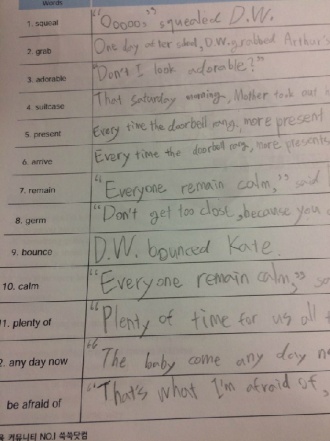 Words
1. squeal "Ooooo," squealed D.W.
2. grab One day after school, D.W. grabbed Arthur's
3. adorable "Don't I look adorable?"
4. suitcase That Saturday morning, Mother took out h
5. present Every time the doorbell rang, more present
6. arrive Every time the doorbell rang, more presents
7. remain "Everyone remain calm," said
8. germ "Don't get too close, because you
9. bounce D.W. bounced Kate.
10. calm "Everyone remain calm," sa
11. plenty of "Plenty of time for us all t
2. any day now "The baby come any day n
be afraid of "That's what I'm afraid of,
커뮤니티 NO.1 쑥쑥닷컴